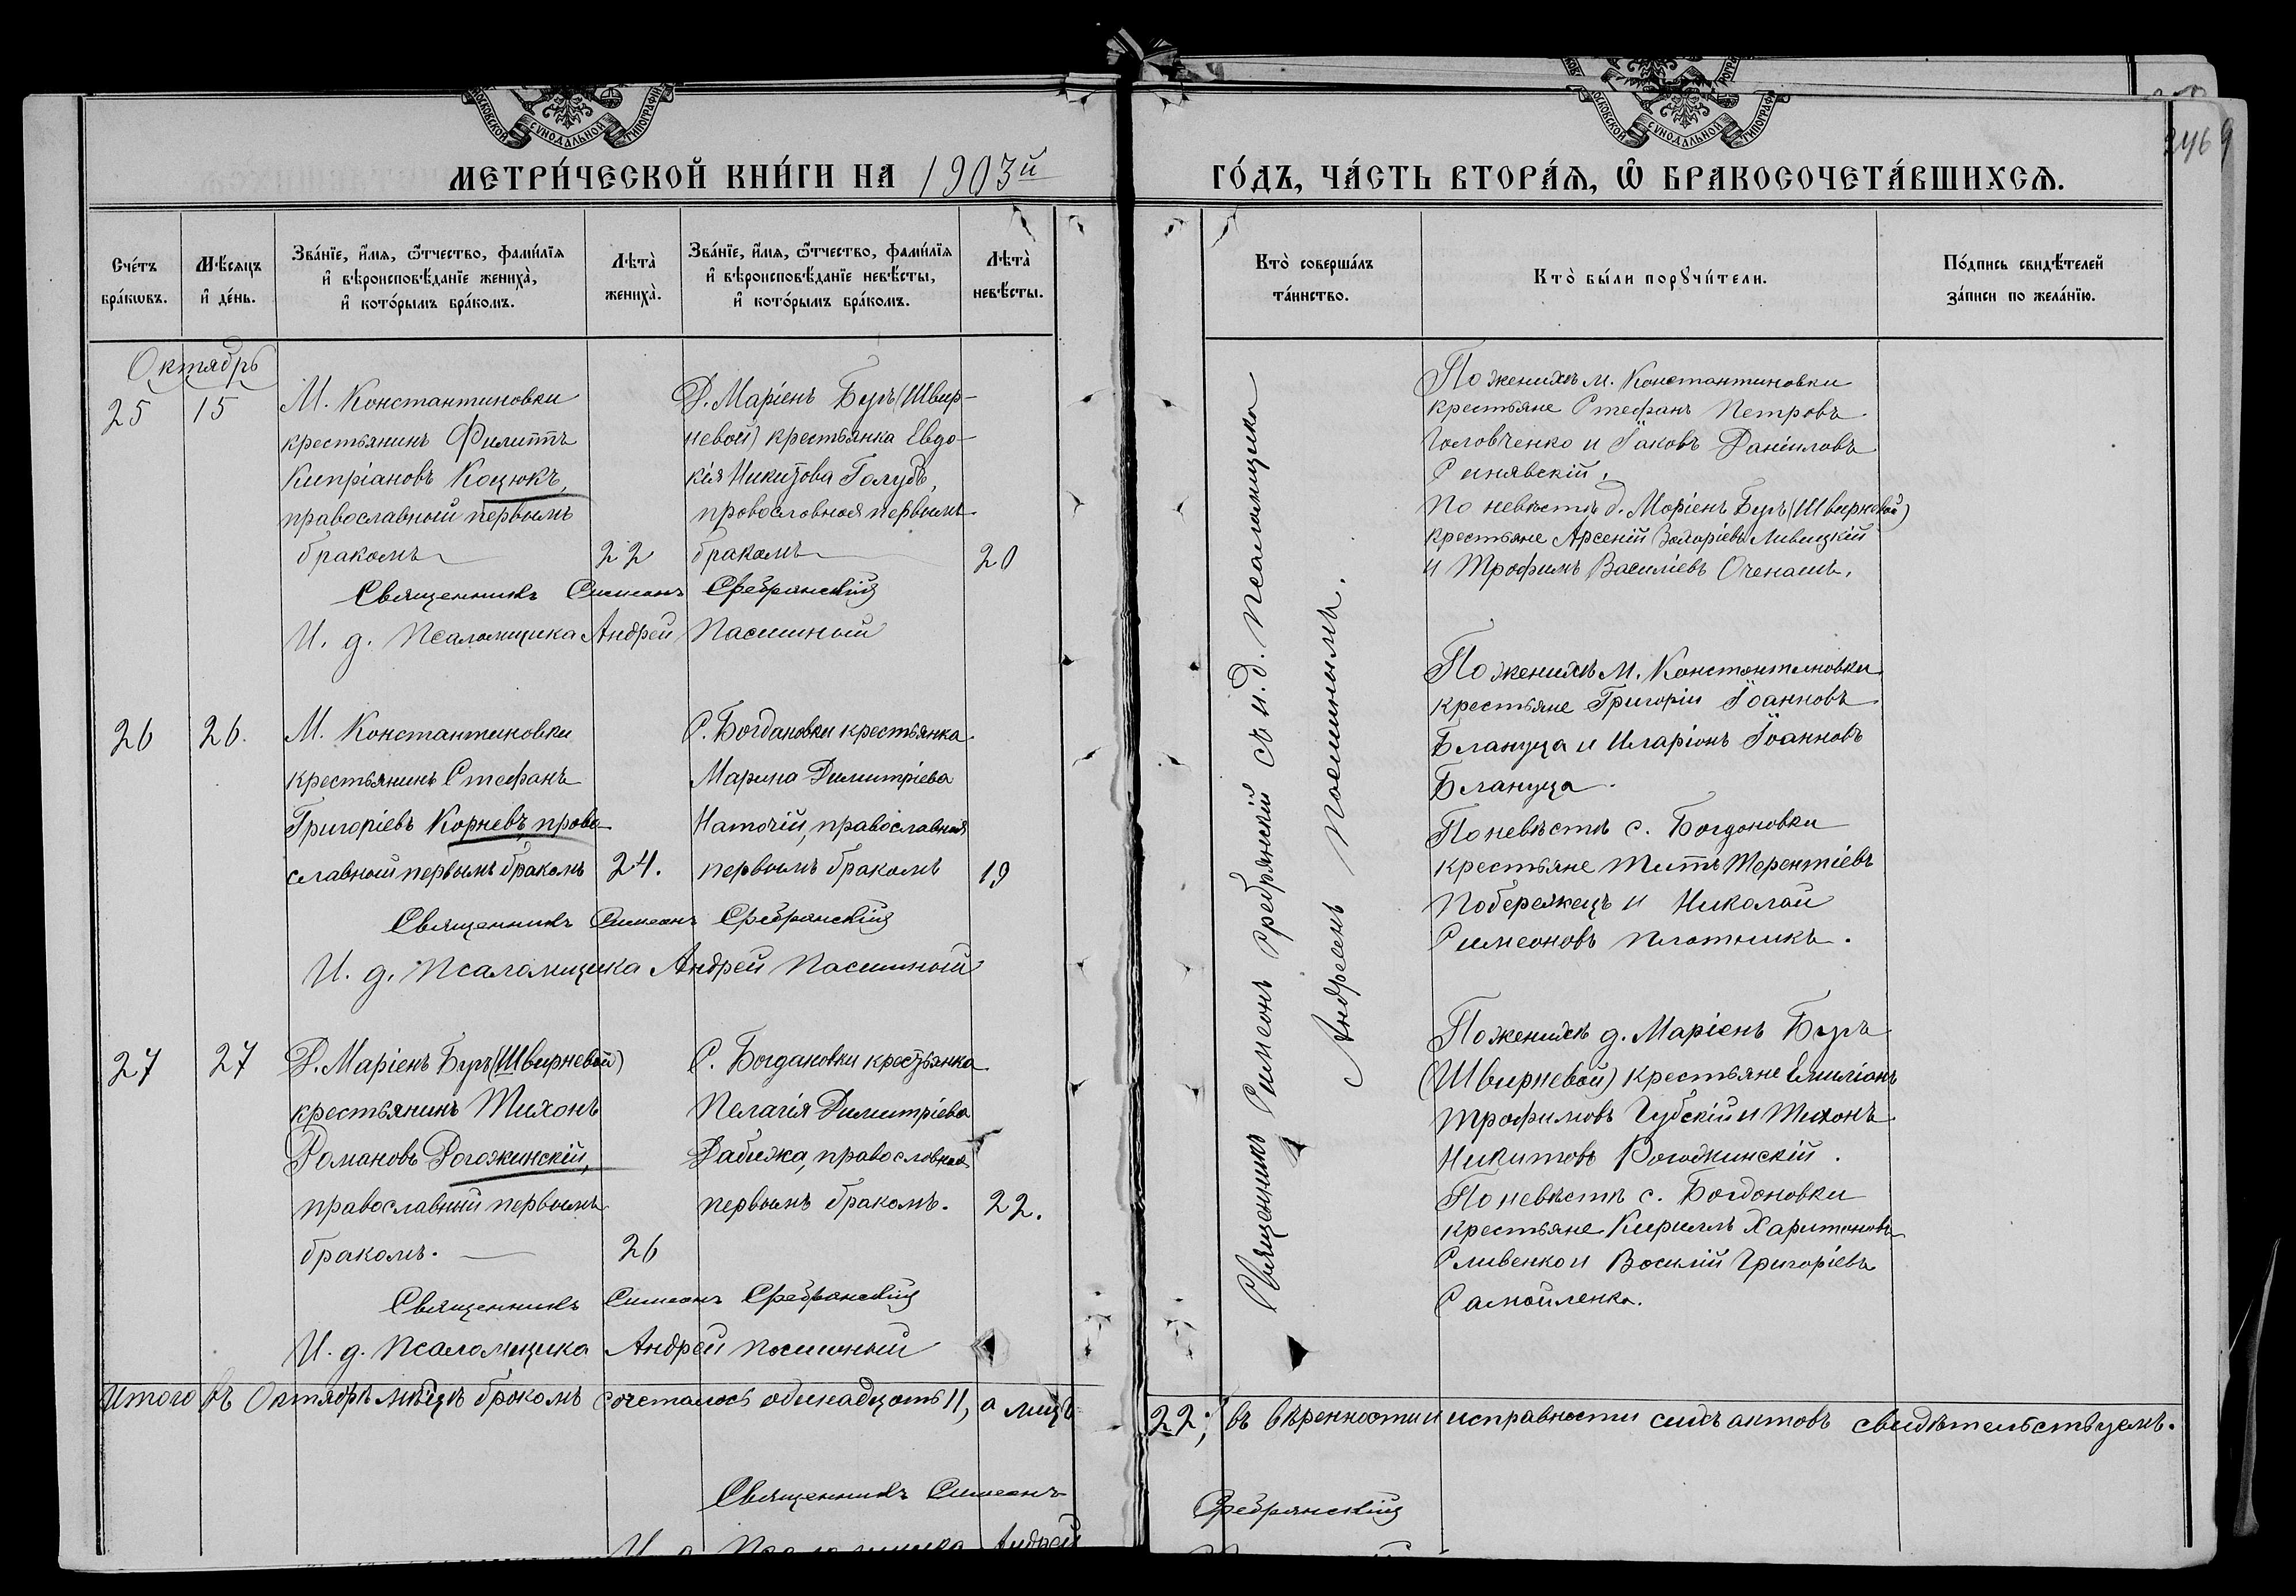 МОСКОВСКОЙ СѴНОДАЛЬНОЙ ТИПОГРАФІИ
МЕТРИ́ЧЕСКОЙ КНИ́ГИ НА 1903й
Сче́тъ бра́кωвъ.
Мѣ́сяцъ и҆ де́нь.
Зва́нїе, и҆́мѧ, ѻ҆́тчество, фами́лїѧ
и҆ вѣроисповѣ́данїе жениха̀,
и҆ кото́рымъ бра́комъ.
Лѣта̀ жениха̀.
Зва́нїе, и҆́мѧ, ѻ҆́тчество, фами́лїѧ
и҆ вѣроисповѣ́данїе невѣ́сты,
и҆ кото́рымъ бра́комъ.
Лѣта̀ невѣ́сты.
Октябрь
25 15
М. Константиновки
крестьянинъ Филиппъ
Кипріановъ Коцюкъ,
православный первымъ
бракомъ 22
Д. Маріенъ Буръ (Швир-
невой) крестьянка Евдо-
кія Никитова Голубъ,
православная первымъ
бракомъ 20
Священникъ Симеонъ Сребрянскій
И. д. Псаломщика Андрей Пасишный
26 26.
М. Константиновки
крестьянинъ Стефанъ
Григоріевъ Корневъ, право
славный первымъ бракомъ 24.
С. Богдановки крестьянка
Марина Димитріева
Наточій, православная
первымъ бракомъ 19
Священникъ Симеонъ Сребрянскій
И. д. Псаломщика Андрей Пасишный
27 27
Д. Маріенъ Буръ (Швирневой)
крестьянинъ Тихонъ
Романовъ Рогожинскій,
православный первымъ
бракомъ. 26
С. Богдановки крестьянка
Пелагія Димитріева
Дабижа, православная
первымъ бракомъ. 22.
Священникъ Симеонъ Сребрянскій
И. д. Псаломщика Андрей Пасишный
Итого въ Октябрѣ мѣсяцѣ бракомъ сочеталось одинадцать 11, а лицъ
Священникъ Симеонъ
И. д. Псаломщика Андрей
МОСКОВСКОЙ СѴНОДАЛЬНОЙ ТИПОГРАФІИ
ГО́ДЪ, ЧА́СТЬ ВТОРА́Ѧ, Ѽ БРАКОСОЧЕТА́ВШИХСѦ.
Кто̀ соверша́лъ
та́инство.
Кто̀ бы́ли порꙋчи́тели.
По́дпись свидѣ́телей
за́писи по жела́нїю.
Священникъ Симеонъ Сребрянскій съ и. д. Псаломщика
Андреемъ Пасишнымъ.
По женихѣ м. Константиновки
крестьяне Стефанъ Петровъ
Головченко и Іаковъ Даніиловъ
Синявскій,
по невѣстѣ д. Маріенъ Буръ (Швирневой)
крестьяне Арсеній Захаріевъ Ливицкій
и Трофимъ Василіевъ Оченашъ.
По женихѣ м. Константиновки
крестьяне Григорій Іоанновъ
Блануца и Иларіонъ Іоанновъ
Блануца.
По невѣстѣ с. Богдановки
крестьяне Титъ Терентіевъ
Побережецъ и Николай
Симеоновъ Плотникъ.
По женихѣ д. Маріенъ Буръ
(Швирневой) крестьяне Емиліанъ
Трофимовъ Губскій и Тихонъ
Никитовъ Рогожинскій.
По невѣстѣ с. Богдановки
крестьяне Кириллъ Харитоновъ
Сливенко и Василій Григоріевъ
Самойленко.
22; въ вѣренности и исправности сихъ актовъ свидѣтельствуемъ.
Сребрянскій